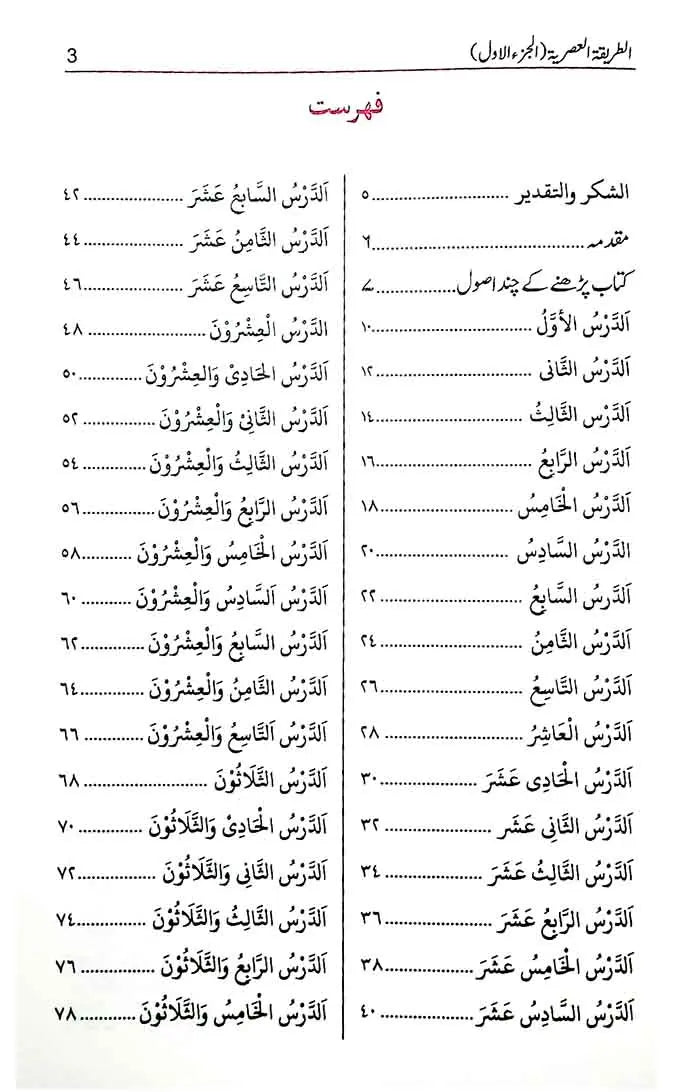 الطريقة العصرية (الجزء الاول) 3
فہرست
الشكر والتقدير..............................٥
مقدمہ..............................٦
کتاب پڑھنے کے چند اصول................۷
اَلدَّرْسُ الأَوَّلُ..............................١٠
اَلدَّرْسُ الثَّانِى..............................١٢
اَلدَّرْس الثَّالِثُ..............................١٤
اَلدَّرْسُ الرَّابِعُ..............................١٦
اَلدَّرْسُ الْخَامِسُ..............................١٨
الدَّرْسُ السَّادِسُ..............................٢٠
اَلدَّرسُ السَّابِعُ..............................٢٢
اَلدَّرْسُ الثَّامِنُ..............................٢٤
اَلدَّرْسُ التَّاسِعُ..............................٢٦
اَلدَّرْسُ الْعَاشِرُ..............................٢٨
اَلدَّرْسُ الْحَادِى عَشَرَ....................٣٠
اَلدَّرْسُ الثَّانِى عَشَر....................٣٢
اَلدَّرْسُ الثَّالِثُ عَشَرَ....................٣٤
اَلدَّرْسُ الرَّابِعُ عَشَرَ....................٣٦
اَلدَّرْسُ الْخَامِسُ عَشَرَ................٣٨
اَلدَّرْسُ السَّادِسُ عَشَرَ................٤٠
اَلدَّرْسُ السَّابِعُ عَشَرَ....................٤٢
اَلدَّرْسُ الثَّامِنُ عَشَرَ....................٤٤
اَلدَّرْسُ التَّاسِعُ عَشَرَ....................٤٦
الدَّرْسُ الْعِشْرُوْنَ........................٤٨
اَلدَّرْسُ الْحَادِىْ وَالعِشْرُوْنَ............٥٠
اَلدَّرْسُ الثَّانِىْ وَالْعِشْرُوْنَ................٥٢
اَلدَّرْسُ الثَّالِثُ وَالْعِشْرُوْنَ............٥٤
اَلدَّرْسُ الرَّابِعُ وَالْعِشْرُوْنَ................٥٦
اَلدَّرْسُ الْخَامِسُ وَالْعِشْرُوْنَ...........٥٨
اَلدَّرْسُ اَلسَّادِسُ وَالْعِشْرُوْنَ...........٦٠
اَلدَّرْسُ السَّابِعُ وَالْعِشْرُوْنَ..............٦٢
اَلدَّرْسُ الثَّامِنُ وَالْعِشْرُوْنَ..............٦٤
اَلدَّرْسُ اَلتَّاسِعُ وَالْعِشْرُوْنَ............٦٦
اَلدَّرْسُ الثَّلَاثُوْنَ........................٦٨
اَلدَّرْسُ الْحَادِىْ وَالثَّلَاثُوْنَ............٧٠
اَلدَّرْسُ الثَّانِى وَالثَّلَاثُوْنَ..............٧٢
اَلدَّرْسُ الثَّالِثُ وَالثَّلَاثُوْنَ.............٧٤
اَلدَّرْسُ الرَّابِعُ وَالثَّلَاثُوْنَ..............٧٦
اَلدَّرْسُ الْخَامِسُ وَالثَّلَاثُوْنَ............٧٨